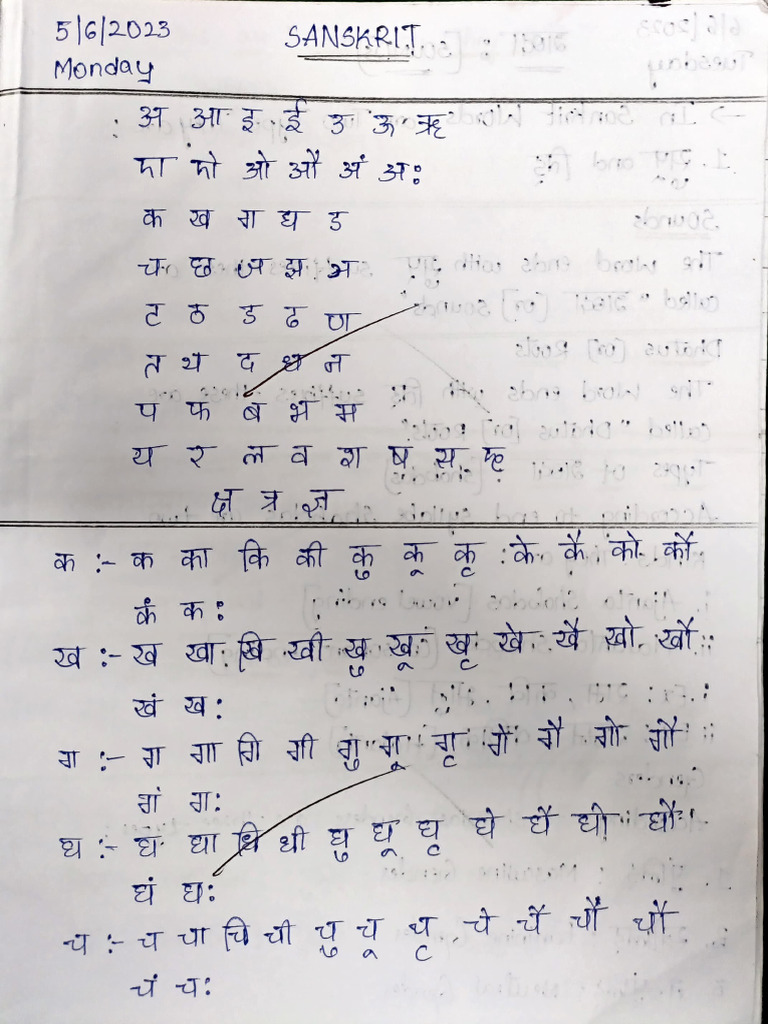 5/6/2023 SANSKRIT
Monday
अ आ इ ई उ ऊ ऋ
ए ऐ ओ औ अं अः
क ख ग घ ड
च छ ज झ ञ
ट ठ ड ढ ण
त थ द ध न
प फ ब भ म
य र ल व श ष स ह
क्ष त्र ज्ञ
क :- क का कि की कु कू कृ के कै को कौ
कं कः
ख :- ख खा खि खी खु खू खृ खे खै खो खौ
खं खः
ग :- ग गा गि गी गु गू गृ गे गै गो गौ
गं गः
घ :- घ घा घि घी घु घू घृ घे घै घो घौ
घं घः
च :- च चा चि ची चु चू चृ चे चै चो चौ
चं चः